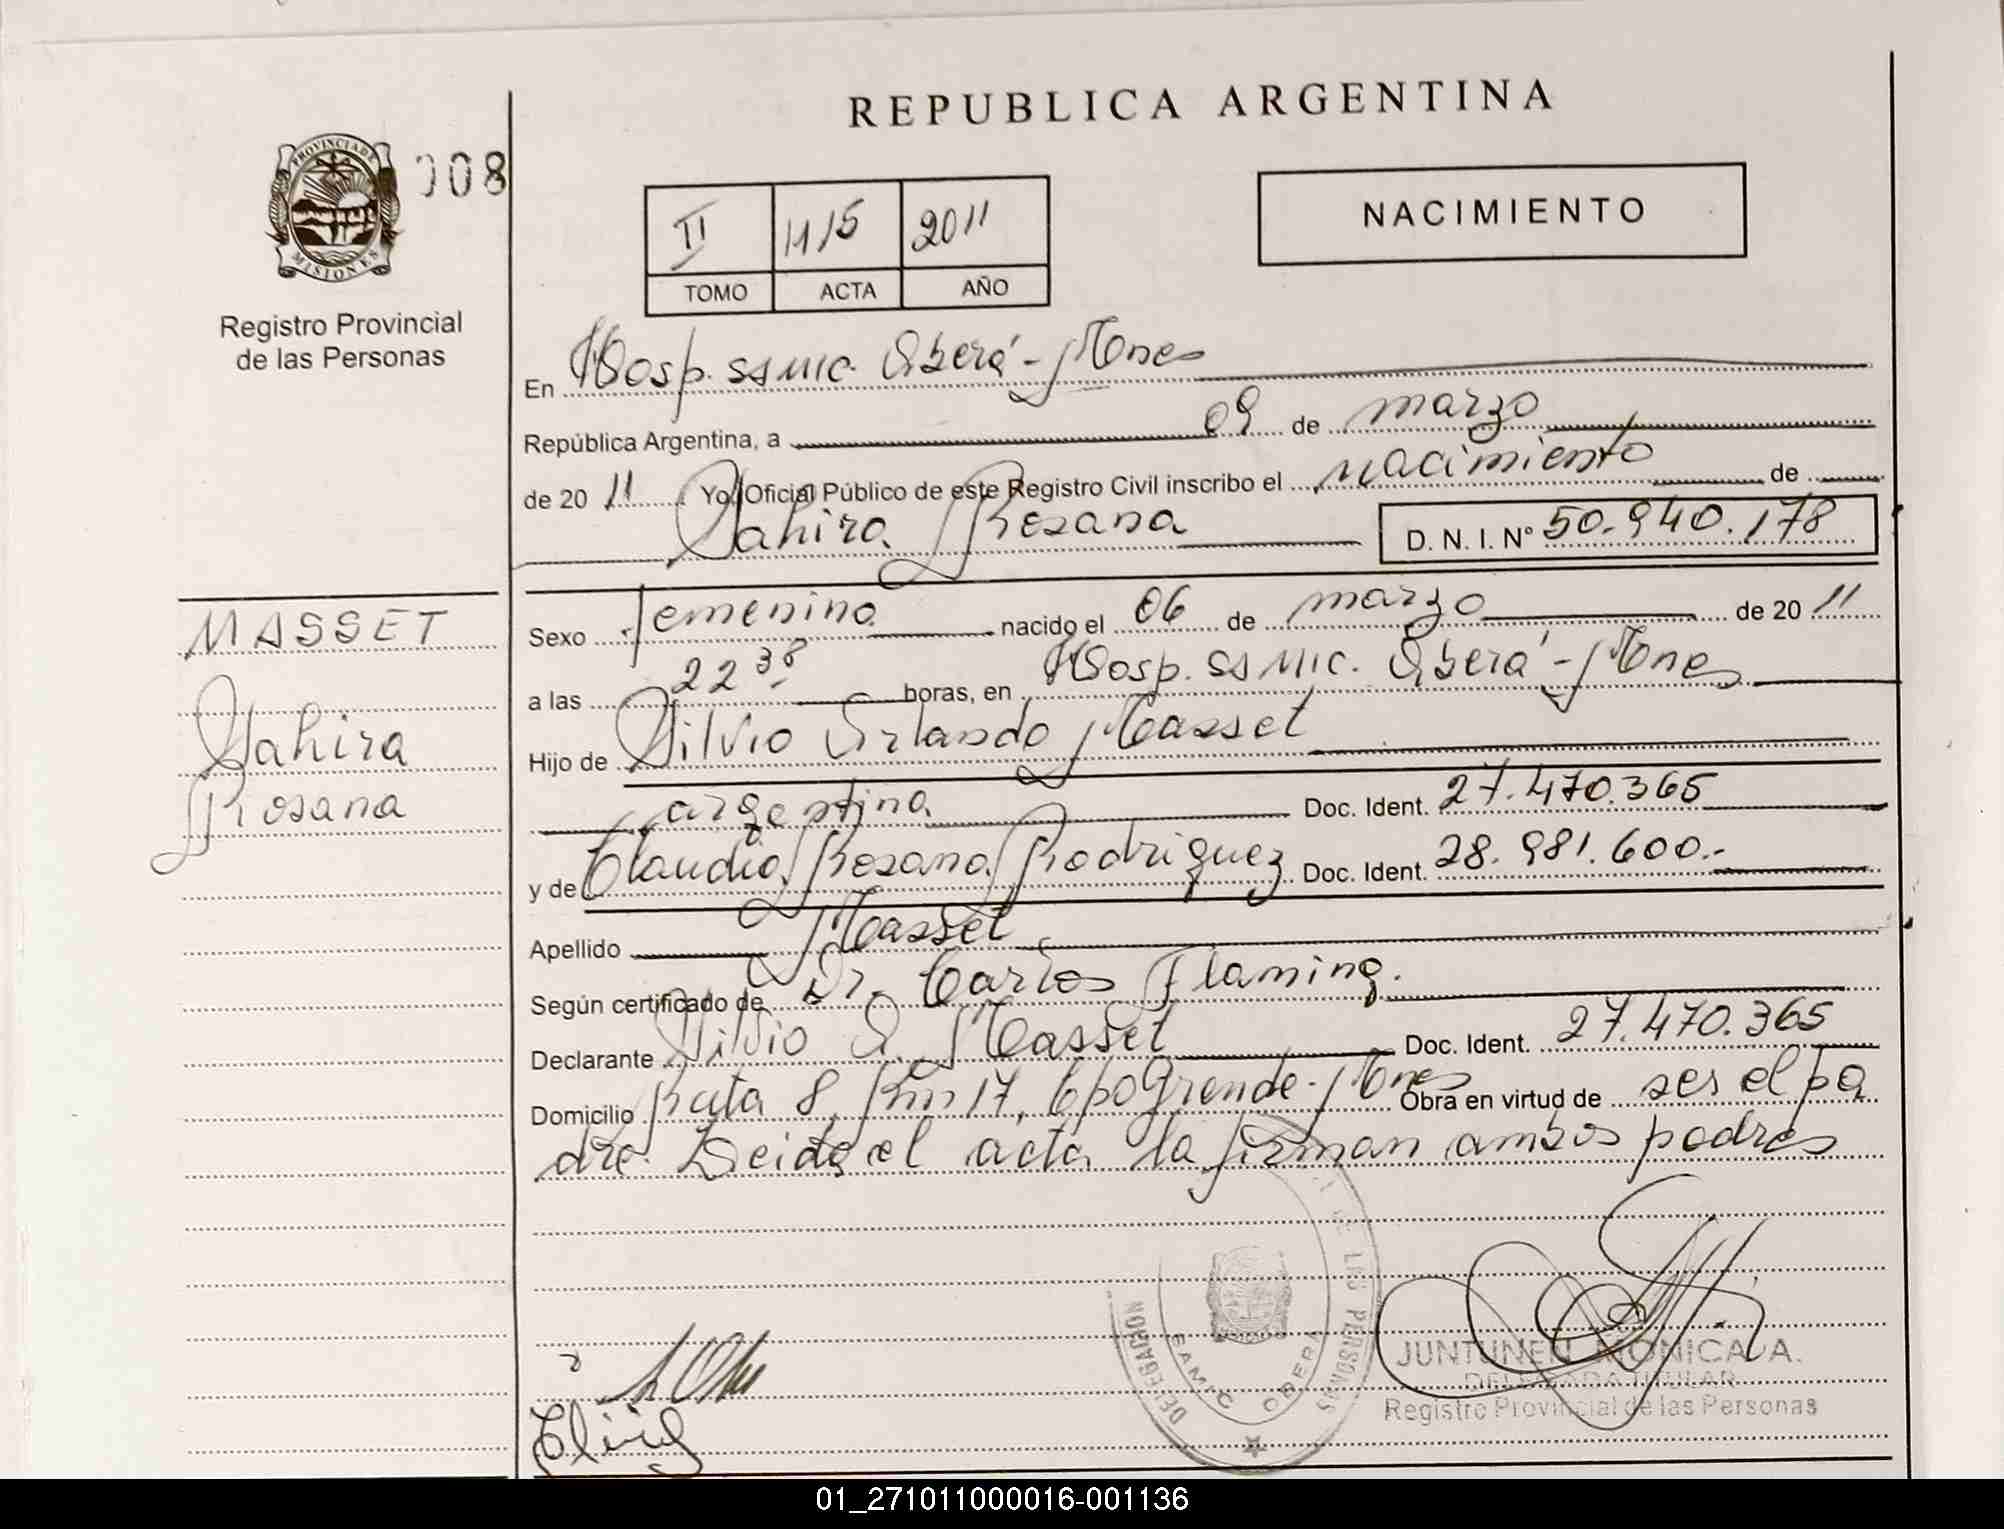 REPUBLICA ARGENTINA
PROVINCIA DE
MISIONES
008
Registro Provincial
de las Personas
II 1115 2011
TOMO ACTA AÑO
NACIMIENTO
En Hosp. SAMIC. Oberá - Mnes
República Argentina, a 09 de marzo
de 20 11 Yo, Oficial Público de este Registro Civil inscribo el nacimiento de
Yahira Rosana D. N. I. N° 50.940.178
MASSET
Yahira
Rosana
Sexo femenino nacido el 06 de marzo de 20 11
a las 22 38 horas, en Hosp. SAMIC. Oberá - Mnes
Hijo de Silvio Orlando Masset
argentina Doc. Ident. 27.470.365
y de Claudia Rosana Rodriguez Doc. Ident. 28.981.600.-
Apellido Masset
Según certificado de Dr. Carlos Flaming.
Declarante Silvio O. Masset Doc. Ident. 27.470.365
Domicilio Ruta 8, Km 17, Cpo Grande - Mnes Obra en virtud de ser el pa
dre. Leida el acta la firman ambos padres
DE LAS PERSONAS
DELEGACION
SAMIC OBERA
JUNTUNEN MONICA A.
DELEGADA TITULAR
Registro Provincial de las Personas
01_271011000016-001136